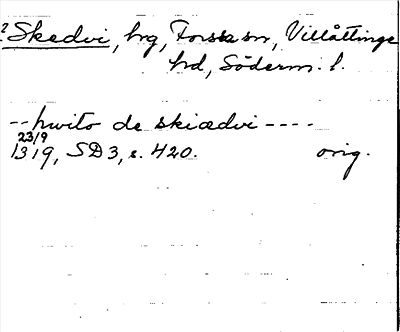 ? Skedvi, hrg, Forssa sn, Villåttinge
hd, Söderm. l.
-- hwito de skiædvi ----
23/9
1319, SD 3, s. 420. orig.